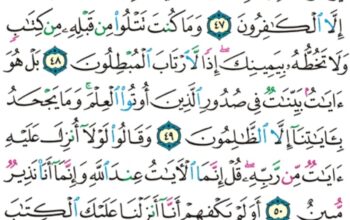 إِلَّا ٱلْكَـٰفِرُونَ ٤٧ وَمَا كُنتَ تَتْلُوا۟ مِن قَبْلِهِۦ مِن كِتَـٰبٍ
وَلَا تَخُطُّهُۥ بِيَمِينِكَ إِذًا لَّٱرْتَابَ ٱلْمُبْطِلُونَ ٤٨ بَلْ هُوَ
ءَايَـٰتٌۢ بَيِّنَـٰتٌ فِى صُدُورِ ٱلَّذِينَ أُوتُوا۟ ٱلْعِلْمَ ۚ وَمَا يَجْحَدُ
بِـَٔايَـٰتِنَآ إِلَّا ٱلظَّـٰلِمُونَ ٤٩ وَقَالُوا۟ لَوْلَآ أُنزِلَ عَلَيْهِ
ءَايَـٰتٌ مِّن رَّبِّهِۦ ۖ قُلْ إِنَّمَا ٱلْـَٔايَـٰتُ عِندَ ٱللَّهِ وَإِنَّمَآ أَنَا۠ نَذِيرٌ
مُّبِينٌ ٥٠ أَوَلَمْ يَكْفِهِمْ أَنَّآ أَنزَلْنَا عَلَيْكَ ٱلْكِتَـٰبَ